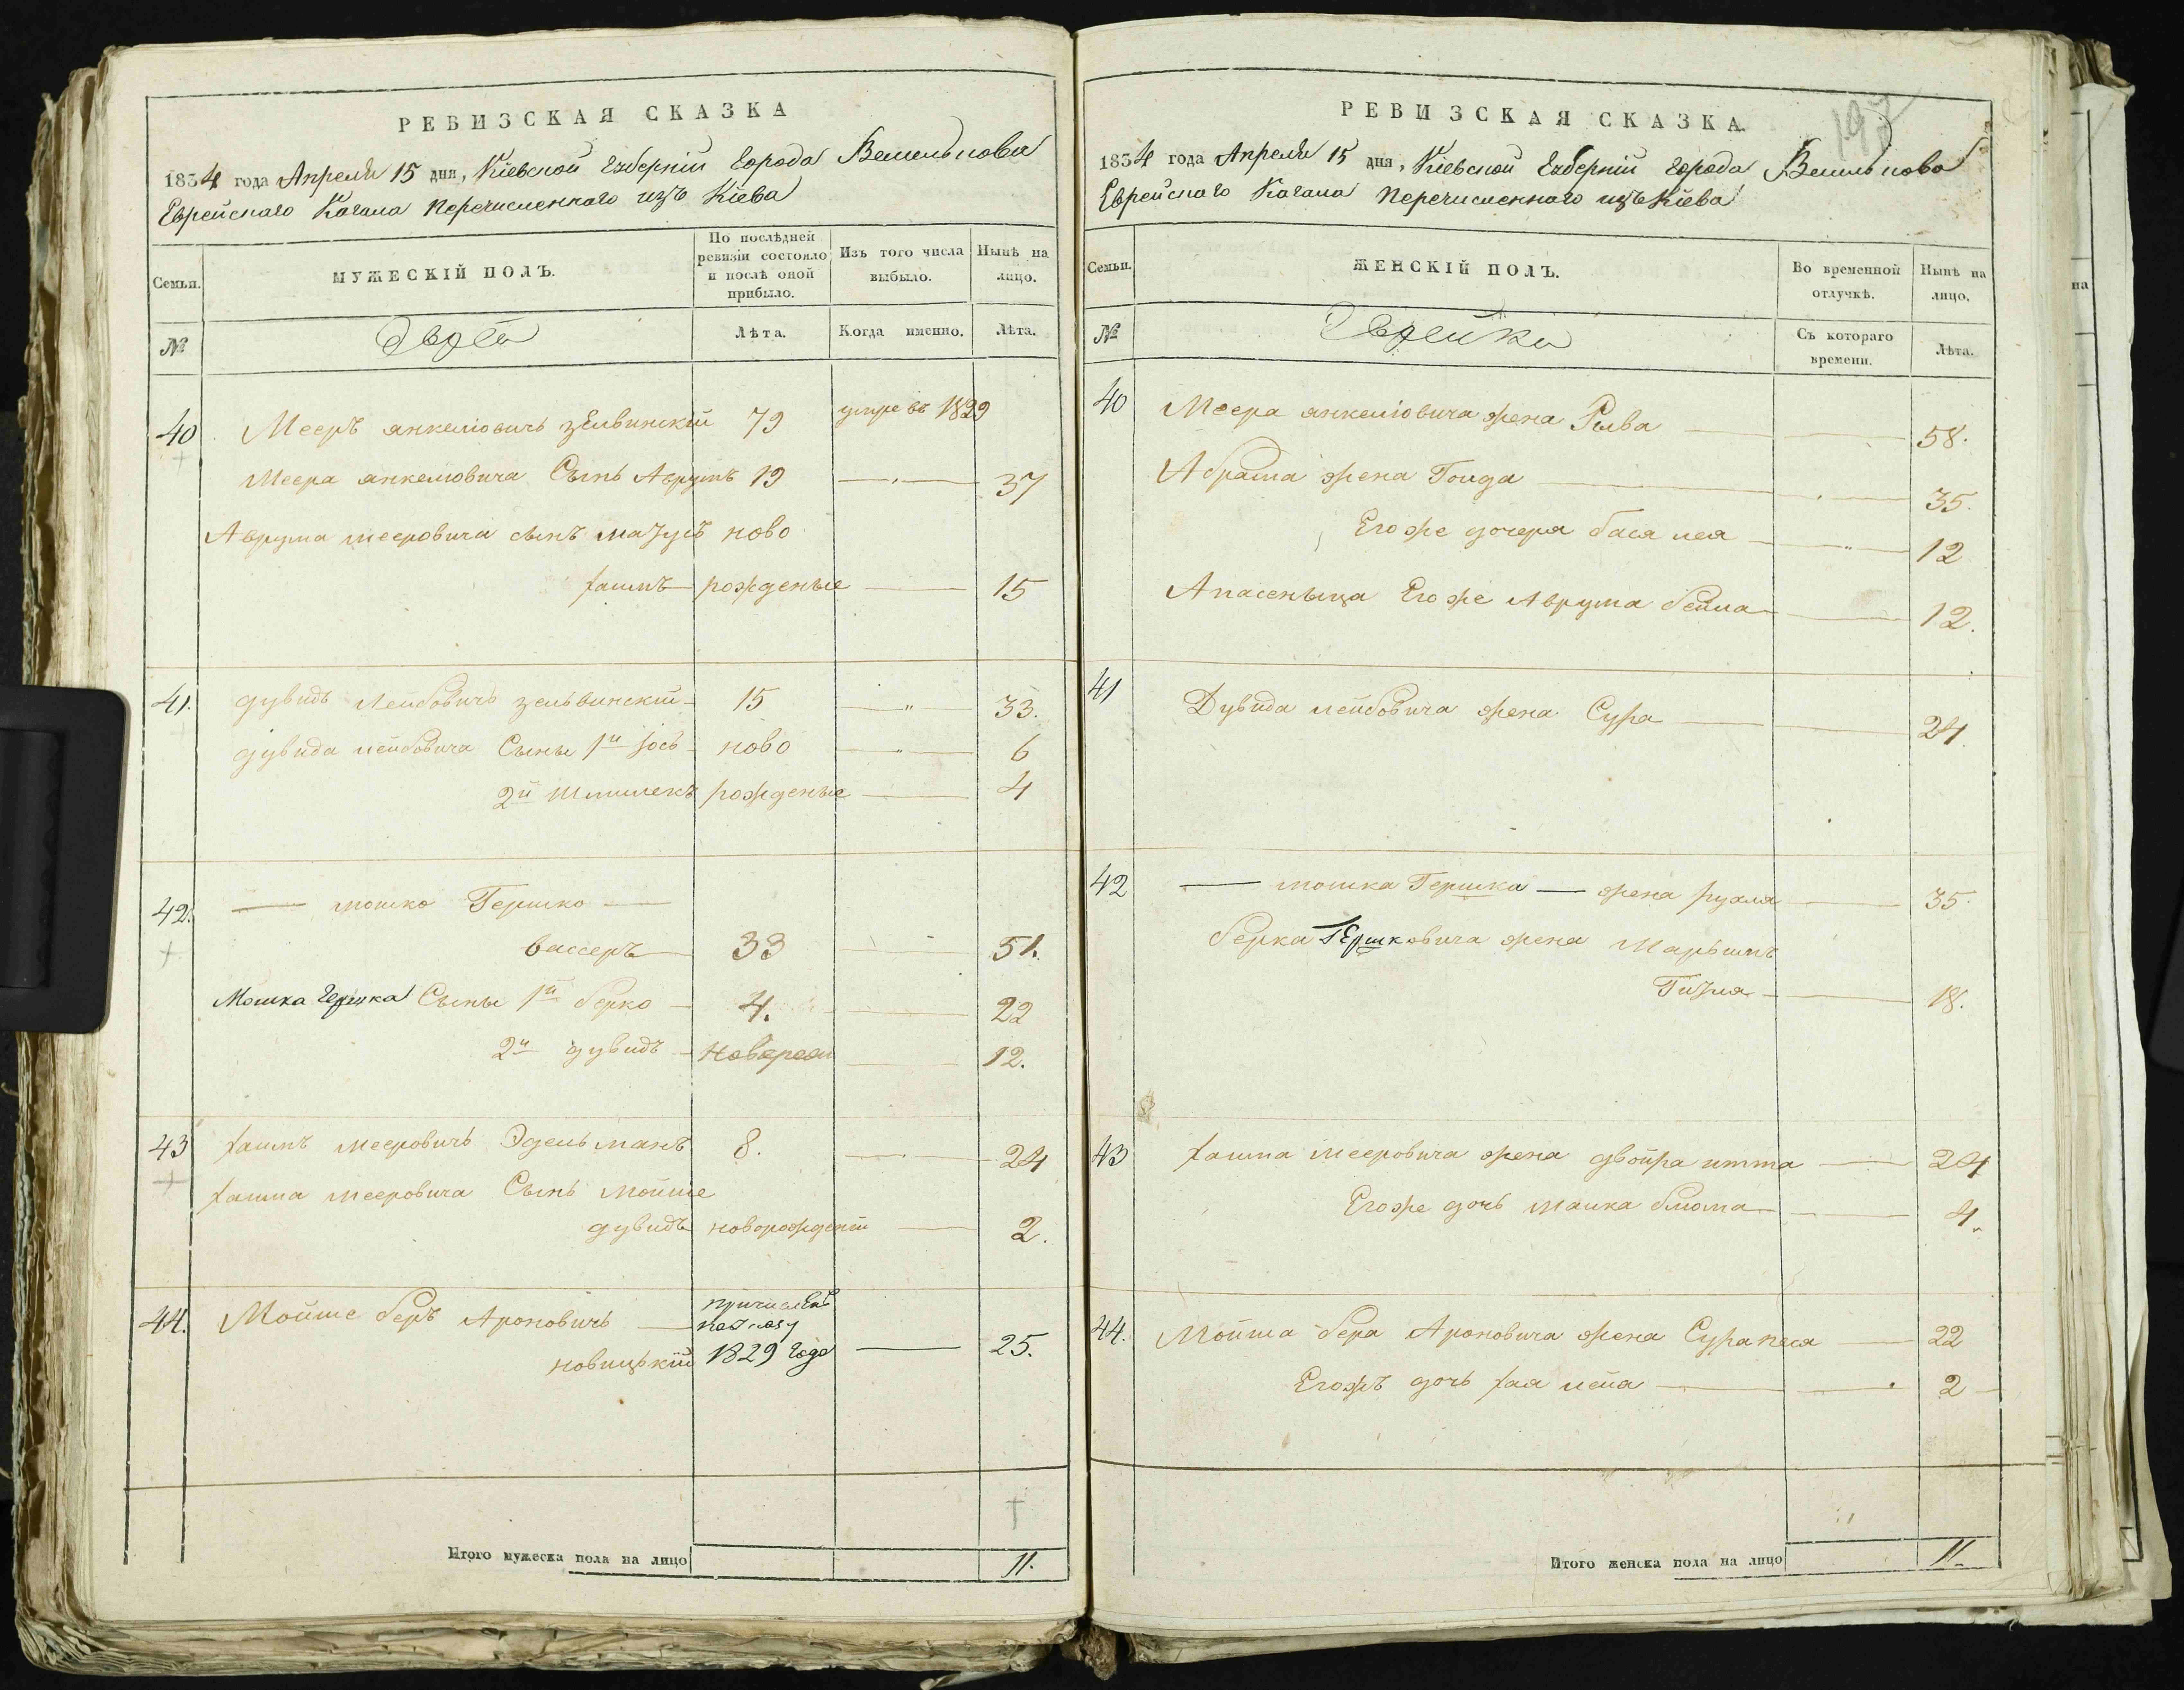 РЕВИЗСКАЯ СКАЗКА
1834 года Апреля 15 дня, Кіевской Губерніи Города Василькова
Еврейскаго Кагала Перечисленнаго изъ Кіева
Семьи.
МУЖЕСКІЙ ПОЛЪ.
По послѣдней ревизіи состояло и послѣ оной прибыло.
Изъ того числа выбыло.
Нынѣ на лицо.
№
Евреи
Лѣта.
Когда именно.
Лѣта.
40 Мееръ янкеліовичь зелвинскій 79 умре въ 1829
Меера янкеліовича Сынъ Аврумъ 19 — 37
Аврума мееровича сынъ мазусъ ново
хаимъ рожденые — 15
41. дувидъ Лейбовичь зельвинскій 15 — „ — 33.
дувида лейбовича Сыны 1й іось ново — „ — 6
2й Шмилекъ рожденые — 4
42. — мошко Гершко —
вассеръ — 33 — 51.
Мошка Гершка Сыны 1й берко — 4. — 22
2й дувидъ — — 12.
43 хаимъ мееровичь Эдельманъ 8. — 24
хаима мееровича Сынъ мойше
дувидъ новорожденій — 2.
44. Мойше беръ Ароновичь — причисленъ
новицькій 1829 года — 25.
Итого мужеска пола на лицо 11.
197
РЕВИЗСКАЯ СКАЗКА
1834 года Апреля 15 дня, Кіевской Губерніи Города Василькова
Еврейскаго Кагала Перечисленнаго изъ Кіева
Семьи.
ЖЕНСКІЙ ПОЛЪ.
Во временной отлучкѣ.
Нынѣ на лицо.
№
Еврейки
Съ котораго времени.
Лѣта.
40 Меера янкеліовича жена Рыва — 58.
Абрама жена Голда — 35.
Егоже дочеря бася лея — „ — 12
Егоже Аврума бейла — 12.
41 Дувида лейбовича жена Сура — 24.
42 — мошка Гершка — жена рухля — 35.
берка Гершковича жена Марьимъ
Гизля — 18.
43 хаима мееровича жена двойра итта — 24
Егоже дочь малка блюма — 4.
44. Мойша бера Ароновича жена Сура песя — 22
Егожъ дочь хая лейа — 2
Итого женска пола на лицо 11.